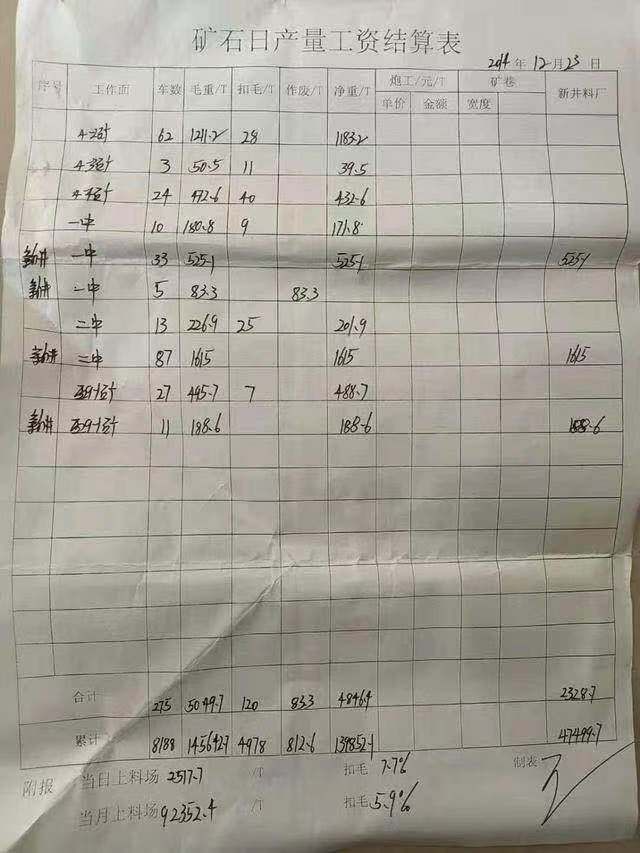 矿石日产量工资结算表
2014年12月23日
序号 工作面 车数 毛重/T 扣毛/T 作废/T 净重/T 炮工/元/T 矿巷 新井料厂
单价 金额 宽度
62 1211.2 28 1183.2
3 50.5 11 39.5
24 472.6 40 432.6
一中 10 180.8 9 171.8
新井 一中 33 525.1 525.1 525.1
新井 一中 5 83.3 83.3
二中 13 226.9 25 201.9
新井 二中 87 1615 1615 1615
27 495.7 7 488.7
新井 11 188.6 188.6 188.6
合计 275 5049.7 120 83.3 4846.4 2328.7
累计 8188 145642.7 4978 812.6 139852.1 47499.7
附报 当日上料场 2517.7 /T 扣毛 7.7% 制表:
当月上料场 92352.4 /T 扣毛 5.9%